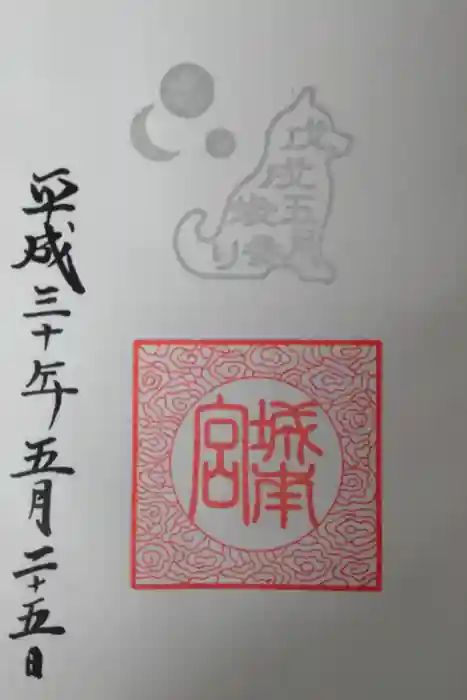 戊戌
五月
城南
宮
平成三十年五月二十五日